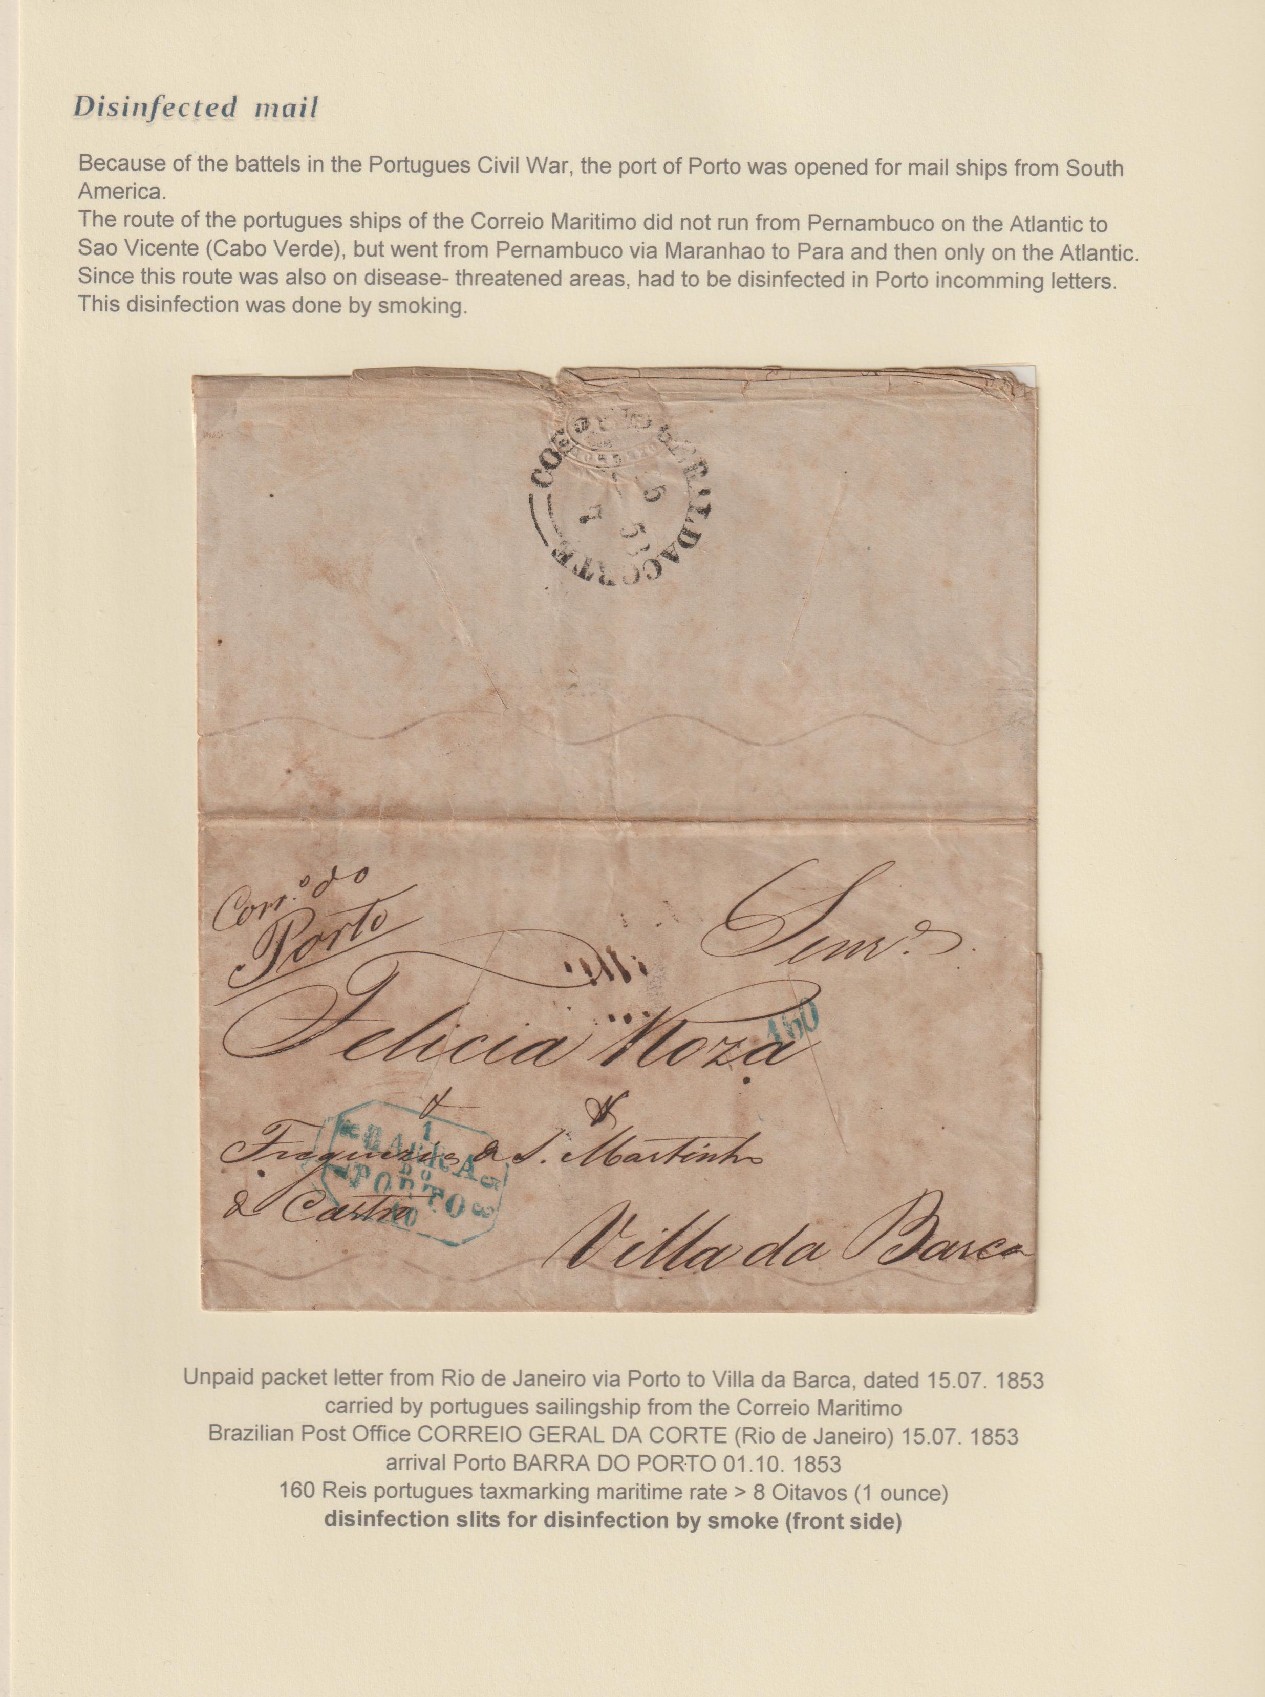 Disinfected mail
Because of the battels in the Portugues Civil War, the port of Porto was opened for mail ships from South
America.
The route of the portugues ships of the Correio Maritimo did not run from Pernambuco on the Atlantic to
Sao Vicente (Cabo Verde), but went from Pernambuco via Maranhao to Para and then only on the Atlantic.
Since this route was also on disease- threatened areas, had to be disinfected in Porto incomming letters.
This disinfection was done by smoking.
Corr.º do
Porto
Senr.ª
Felicia Roza
160
1
BARRA
DO
PORTO
10
Freguezia de S. Martinho
de Castro
Villa da Barca
Unpaid packet letter from Rio de Janeiro via Porto to Villa da Barca, dated 15.07. 1853
carried by portugues sailingship from the Correio Maritimo
Brazilian Post Office CORREIO GERAL DA CORTE (Rio de Janeiro) 15.07. 1853
arrival Porto BARRA DO PORTO 01.10. 1853
160 Reis portugues taxmarking maritime rate > 8 Oitavos (1 ounce)
disinfection slits for disinfection by smoke (front side)